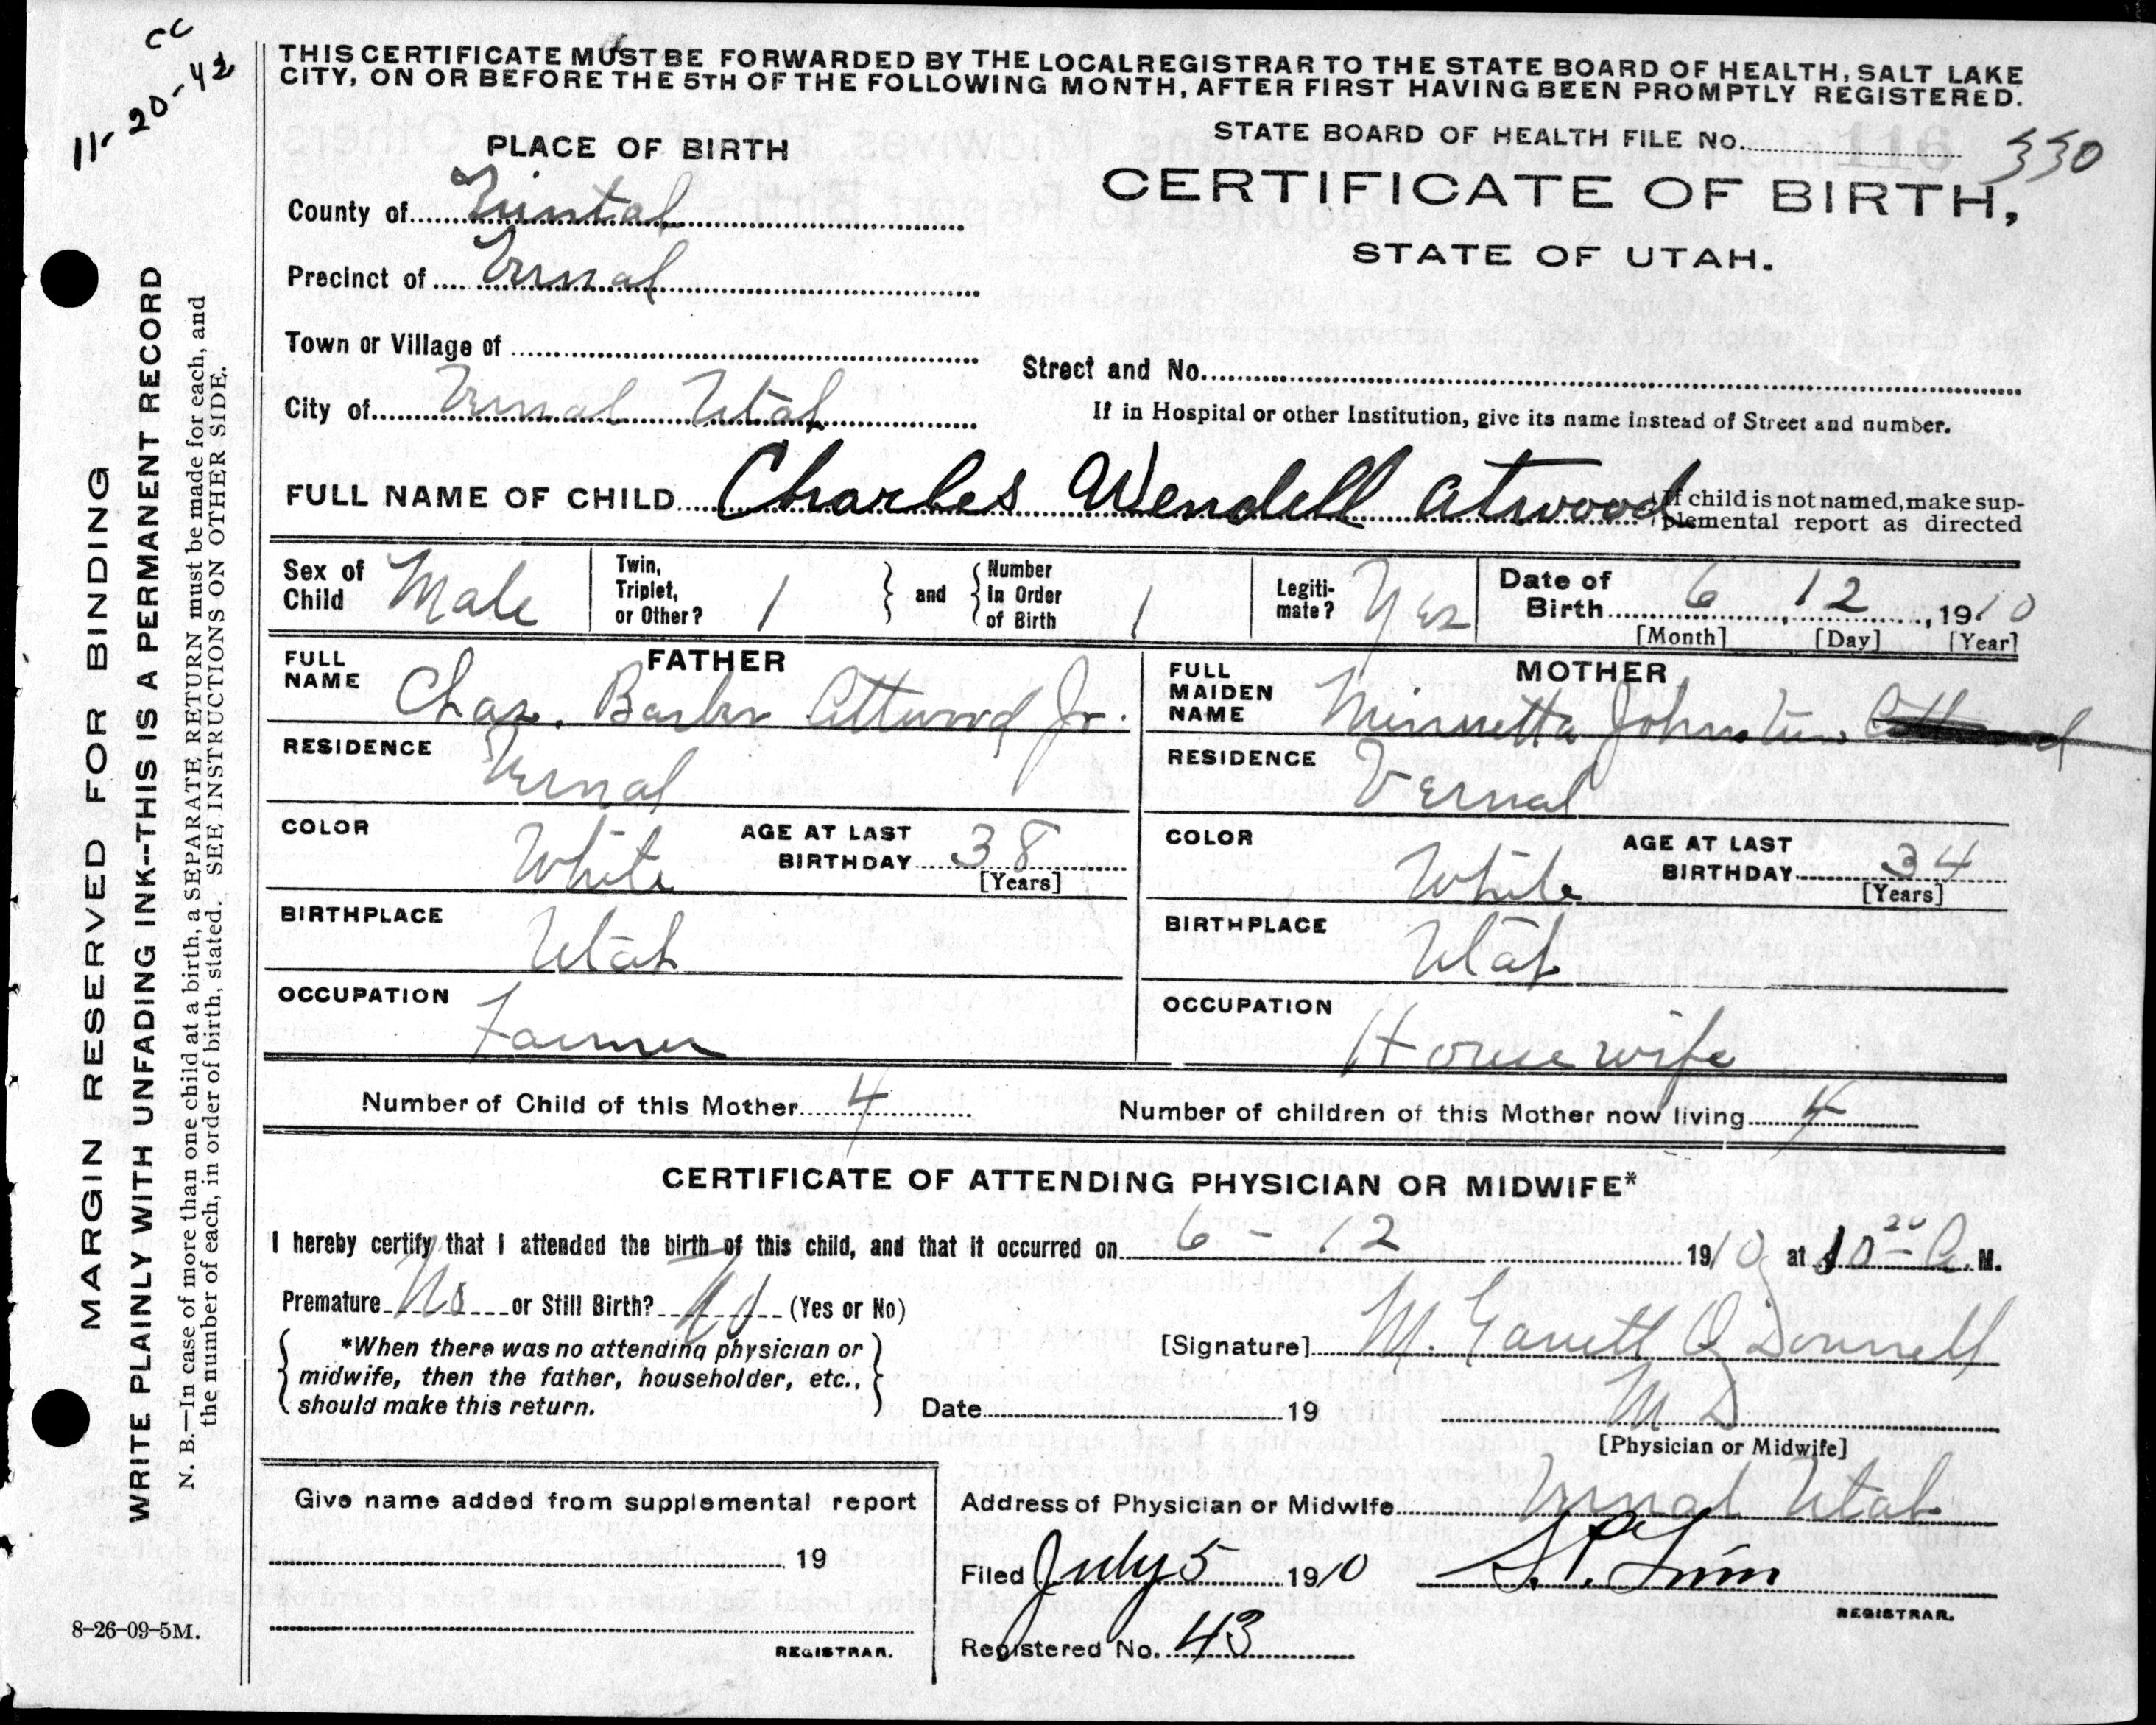 cc
11-20-42
THIS CERTIFICATE MUST BE FORWARDED BY THE LOCAL REGISTRAR TO THE STATE BOARD OF HEALTH, SALT LAKE
CITY, ON OR BEFORE THE 5TH OF THE FOLLOWING MONTH, AFTER FIRST HAVING BEEN PROMPTLY REGISTERED.
PLACE OF BIRTH
STATE BOARD OF HEALTH FILE No. 116 330
County of Uintah
CERTIFICATE OF BIRTH,
STATE OF UTAH.
Precinct of Vernal
Town or Village of
Street and No.
City of Vernal Utah
If in Hospital or other Institution, give its name instead of Street and number.
FULL NAME OF CHILD Charles Wendell Atwood
If child is not named, make sup-
plemental report as directed
Sex of Child Male
Twin, Triplet, or Other? 1
and
Number In Order of Birth 1
Legiti-mate? Yes
Date of Birth 6, 12, 1910
[Month] [Day] [Year]
FATHER
FULL NAME Chas. Barber Attwood Jr.
MOTHER
FULL MAIDEN NAME Minnetta Johnston
RESIDENCE Vernal
RESIDENCE Vernal
COLOR White
AGE AT LAST BIRTHDAY 38 [Years]
COLOR White
AGE AT LAST BIRTHDAY 34 [Years]
BIRTHPLACE Utah
BIRTHPLACE Utah
OCCUPATION Farmer
OCCUPATION House wife
Number of Child of this Mother 4
Number of children of this Mother now living 4
CERTIFICATE OF ATTENDING PHYSICIAN OR MIDWIFE*
I hereby certify that I attended the birth of this child, and that it occurred on 6 - 12 1910 at 10 20 A. M.
Premature No or Still Birth? No (Yes or No)
*When there was no attending physician or
midwife, then the father, householder, etc.,
should make this return.
[Signature] M. Garrett O Donnell
Date 19
M D
[Physician or Midwife]
Give name added from supplemental report
19
REGISTRAR.
Address of Physician or Midwife Vernal Utah
Filed July 5 1910
REGISTRAR.
Registered No. 43
MARGIN RESERVED FOR BINDING
WRITE PLAINLY WITH UNFADING INK--THIS IS A PERMANENT RECORD
N. B.—In case of more than one child at a birth, a SEPARATE RETURN must be made for each, and
the number of each, in order of birth, stated. SEE INSTRUCTIONS ON OTHER SIDE.
8-26-09-5M.